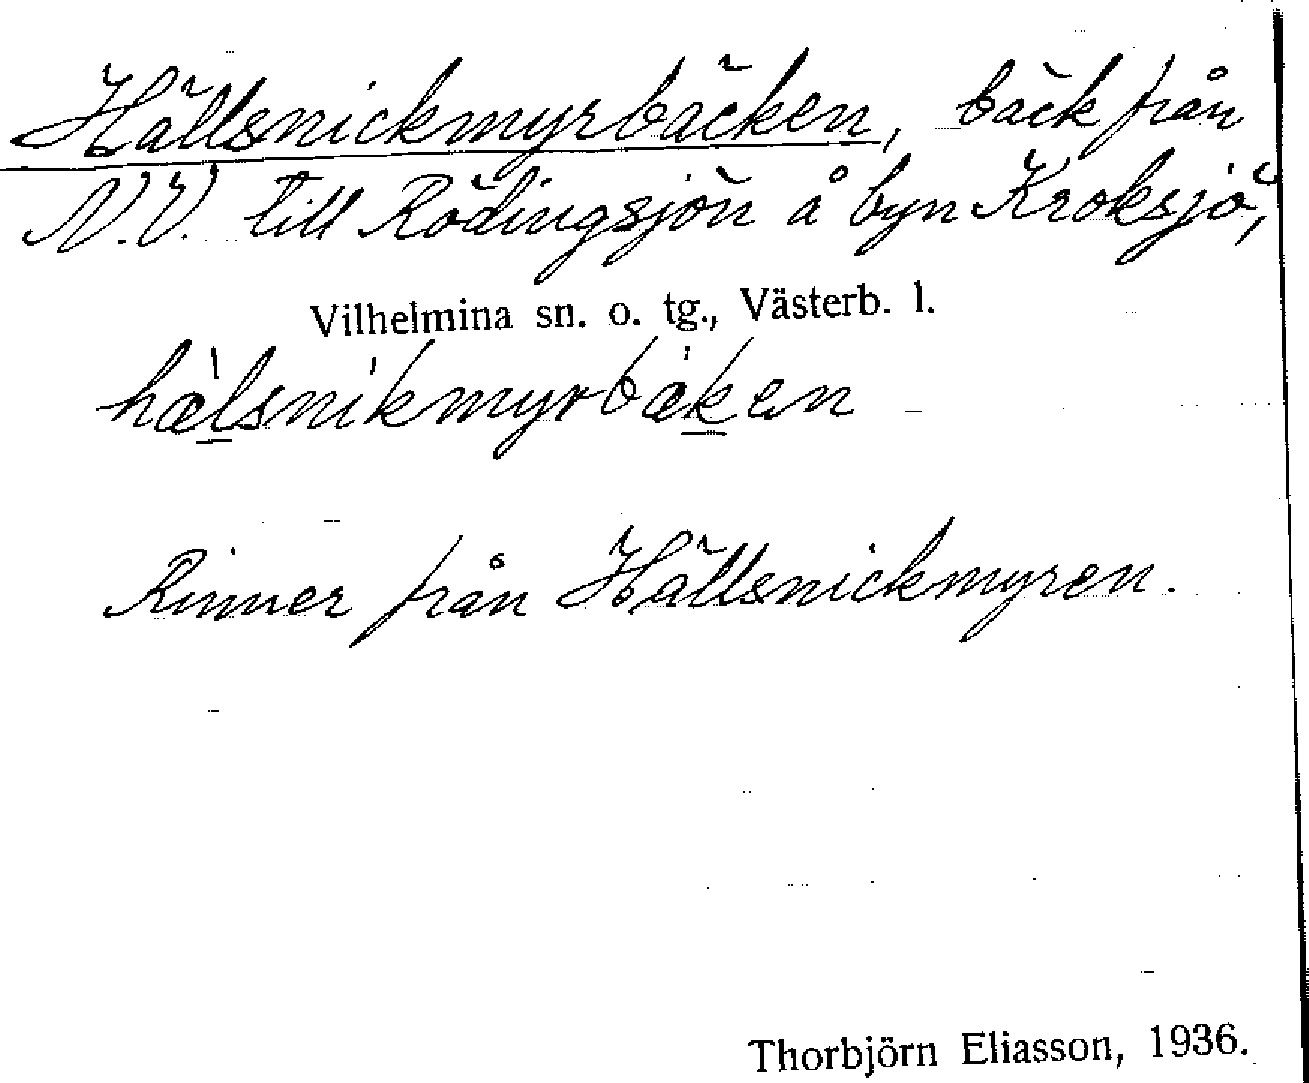 Hällsnickmyrbäcken, bäck från
N.V. till Rödingsjön å byn Kroksjö,
Vilhelmina sn. o. tg., Västerb. l.
hælsnikmyrbæken
Rinner från Hällsnickmyren.
Thorbjörn Eliasson, 1936.